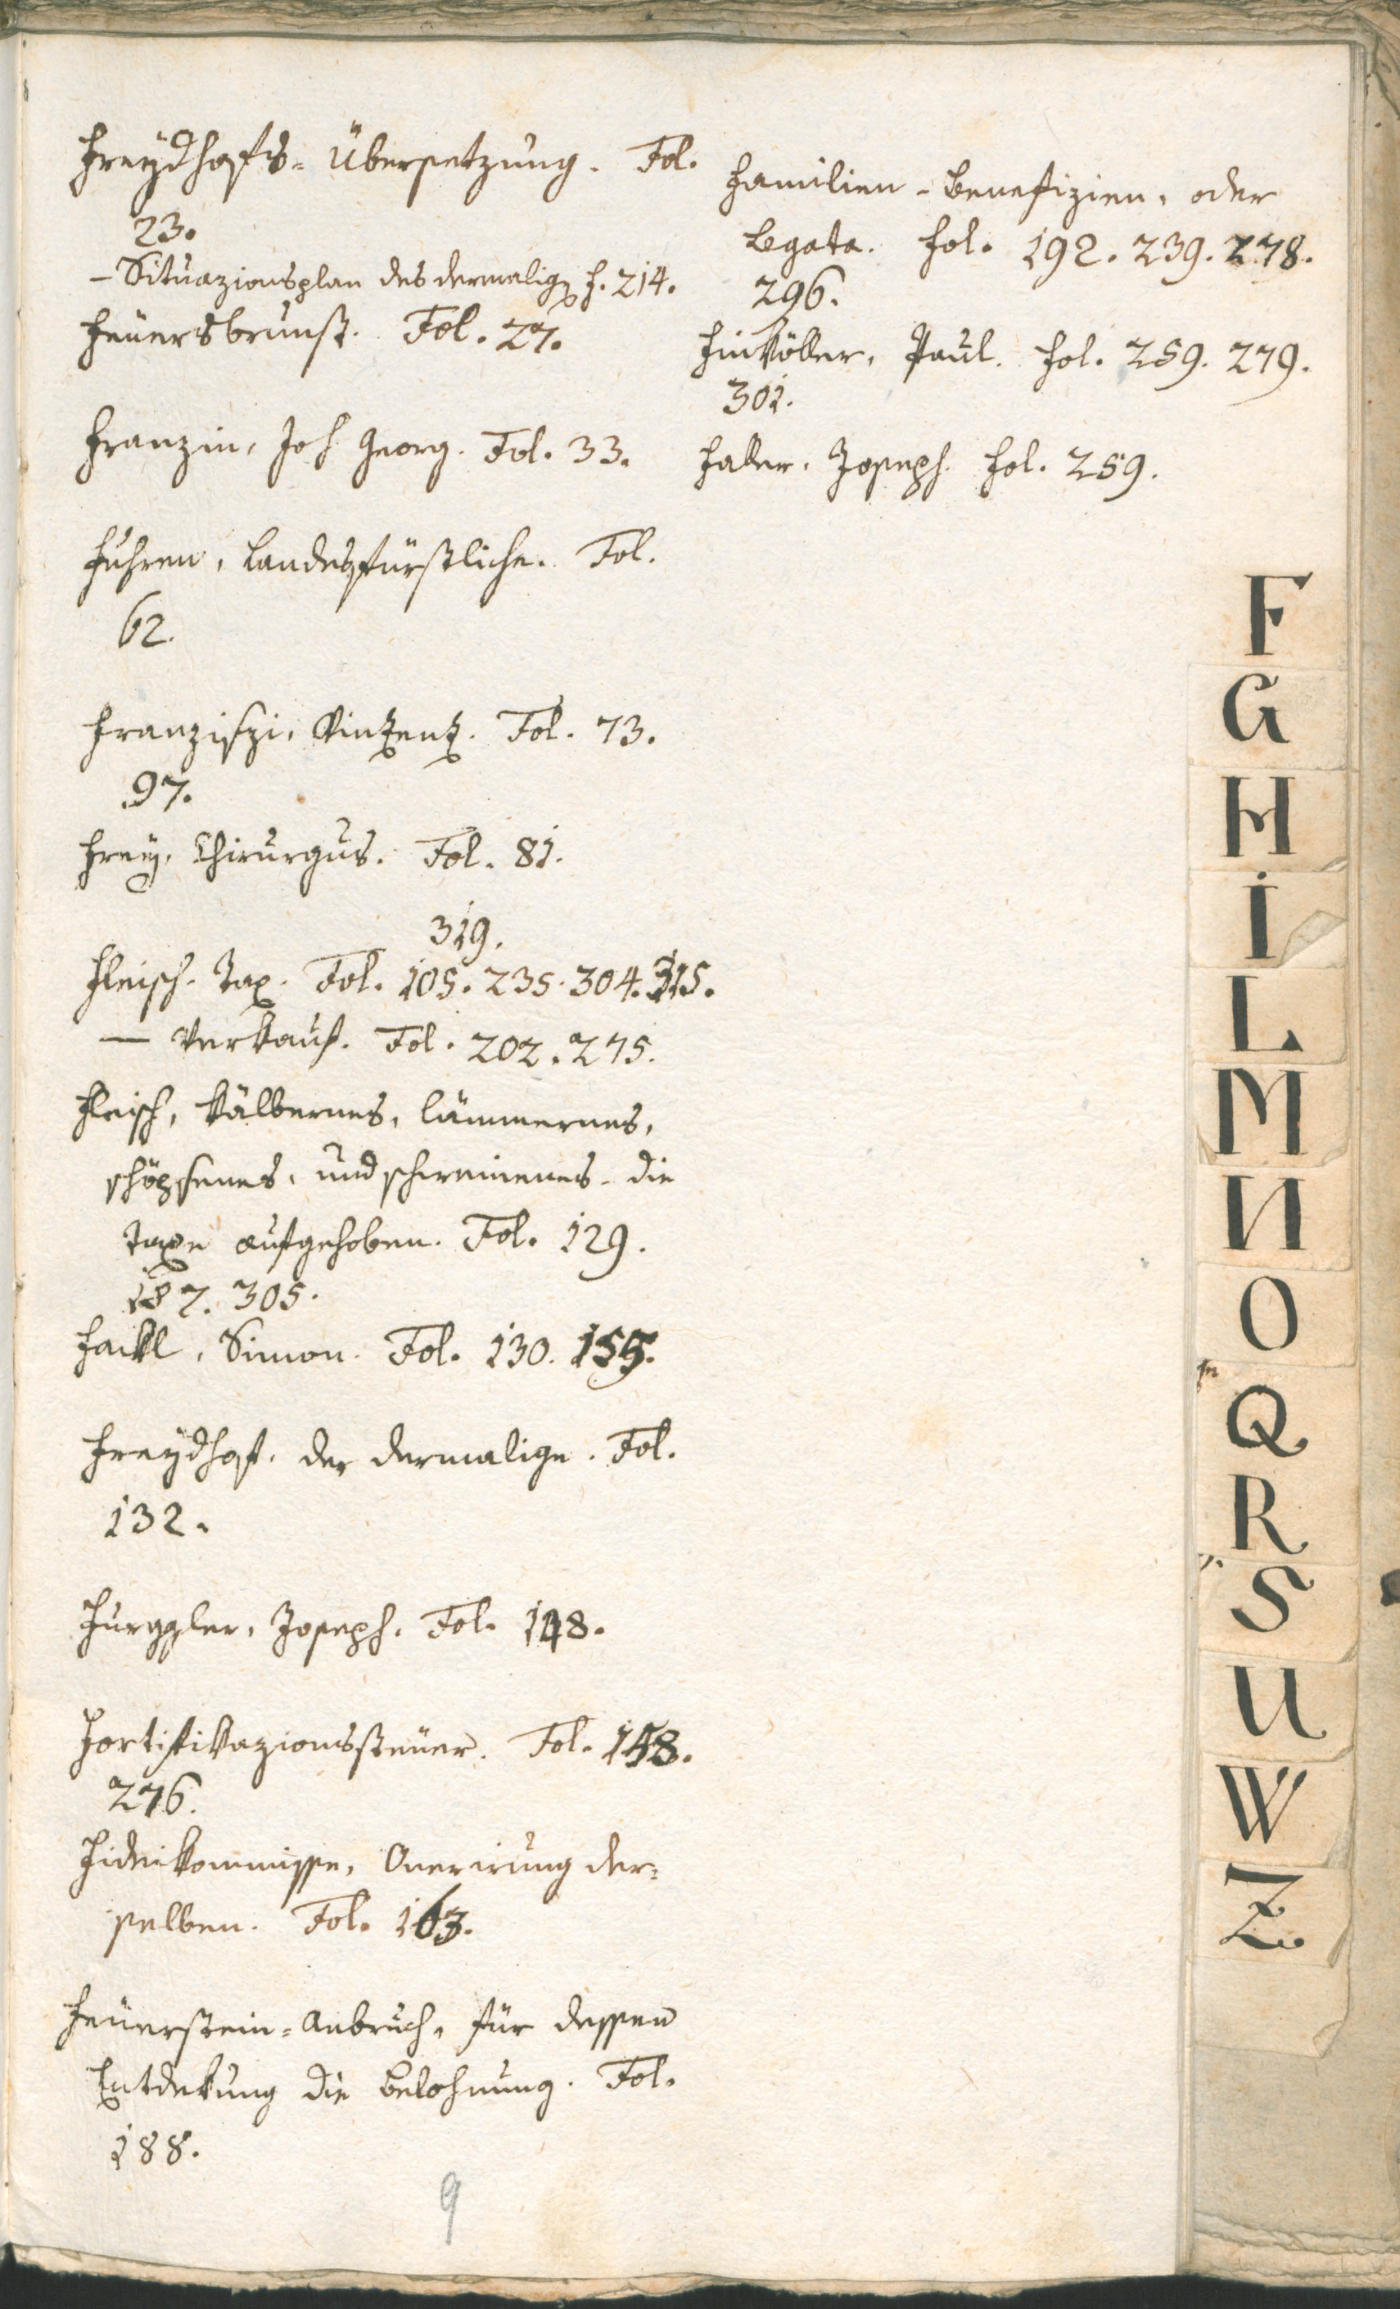 Freÿdhofs-Übersetzung. Fol.
23.
- Situazionsplan des dermalig f. 214.
Feüersbrunst. Fol. 27.
Franzin, Joh Georg. Fol. 33.
Fuhren, Landesfürstliche. Fol.
62.
Franziszi, Vinzenz. Fol. 73.
97.
Freÿ, Chirurgus. Fol. 81.
319.
Fleisch-Tax. Fol. 105. 235. 304. 315.
— Verkauf. Fol. 202. 275.
Fleisch, kälbernes, lämmernes,
schöpsenes, und schweinenes - die
Taxe aufgehoben. Fol. 129.
187. 305.
Fackl, Simon. Fol. 130. 155.
Freÿdhof, der dermalige. Fol.
132.
Furggler, Joseph. Fol. 148.
Fortifikazionssteüer. Fol. 158.
276.
Fideikommisse, Onerirung der=
selben. Fol. 163.
Feüerstein-Anbruch, für dessen
Entdekung die Belohnung. Fol.
188.
9
Familien-Benefizien, oder
Legata. Fol. 192. 239. 278.
296.
Paul. Fol. 259. 279.
301.
Faller, Joseph. Fol. 259.
F
G
H
I
L
M
N
O
Q
R
S
U
W
Z.